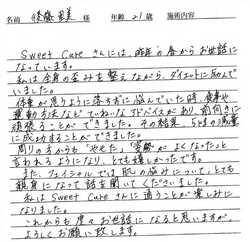 名前 後藤 恵美 様 年齢 21歳 施術内容
Sweet Cure さんには、昨年の春からお世話に
なっています。
私は全身の歪みを整えながら、ダイエットに励んで
いました。
体重が思うように落ちずに悩んでいた時、食事や
運動方法などていねいなアドバイスがあり、前向きに
頑張ることができました。その結果、5kgの減量
に成功することができました。
周りの方からも"やせた""姿勢がよくなった"と
言われるようになり、とても嬉しかったです。
また、フェイシャルでは肌の悩みについて、とても
親身になって話を聞いてくださいました。
私は Sweet Cure さんに通うことが楽しみに
なりました。
これからも度々お世話になると思いますが、
よろしくお願い致します。